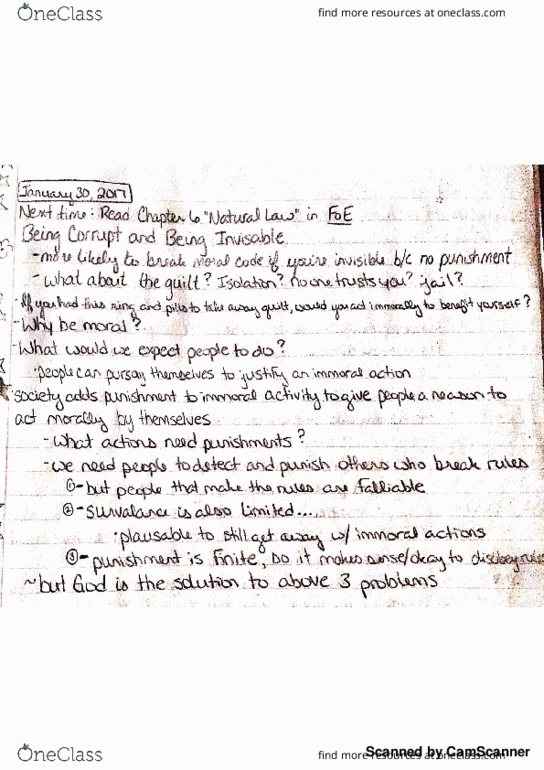 OneClass
find more resources at oneclass.com
January 30, 2017
Next time: Read Chapter 6 "Natural Law" in FoE
Being Corrupt and Being Invisable
-more likely to break moral code if you're invisible b/c no punishment
-what about the guilt? Isolation? no one trusts you? jail?
·If you had this ring and pills to take away guilt, would you act immorally to benefit yourself?
-Why be moral?
-What would we expect people to do?
·people can pursay themselves to justify an immoral action
·society adds punishment to immoral activity to give people a reason to
act morally by themselves
-what actions need punishments?
-we need people to detect and punish others who break rules
①-but people that make the rules are falliable
②-survalance is also limited....
·plausable to still get away w/ immoral actions
③-punishment is finite, so it makes sense/okay to disobey rules
~but God is the solution to above 3 problems
OneClass
find more resources at oneclass.com
Scanned by CamScanner